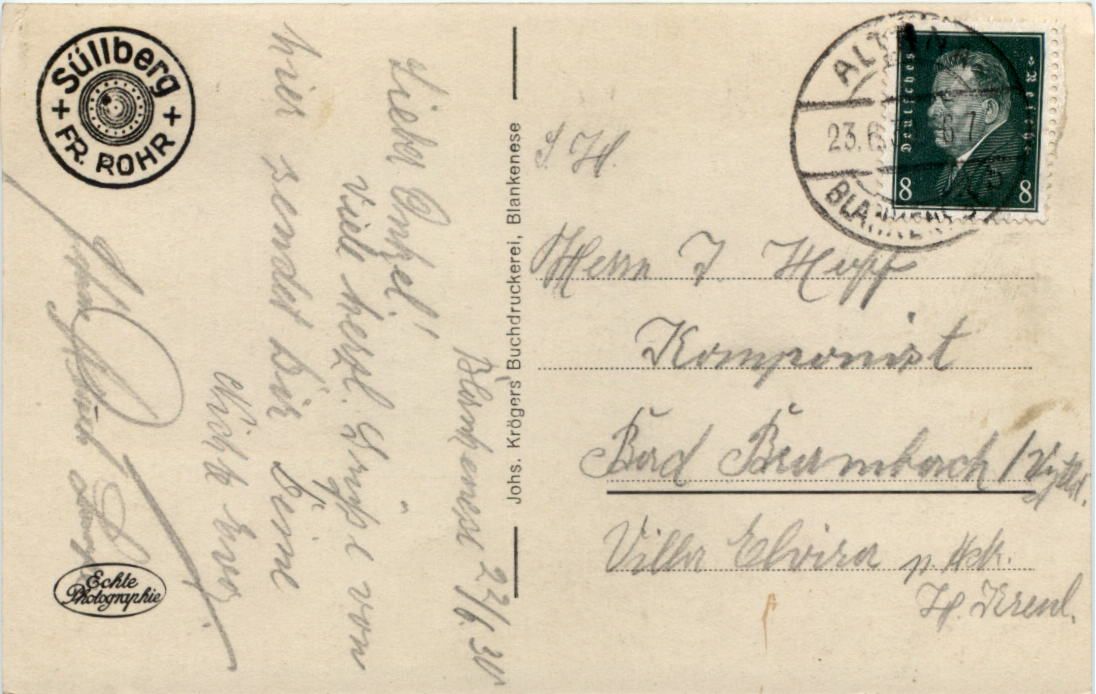 Süllberg
+ FR. ROHR +
Blankenese 22/6 30
Lieber Onkel!
viele herzl. Grüße von
hier sendet Dir Deine
Nichte
Echte
Photographie
Johs. Krögers Buchdruckerei, Blankenese
ALTONA
23.6.
BLANKENESE
Deutsches Reich
8 8
S. H.
Herrn J. Hopf
Komponist
Bad Brambach / Vgtld.
Villa Elvira